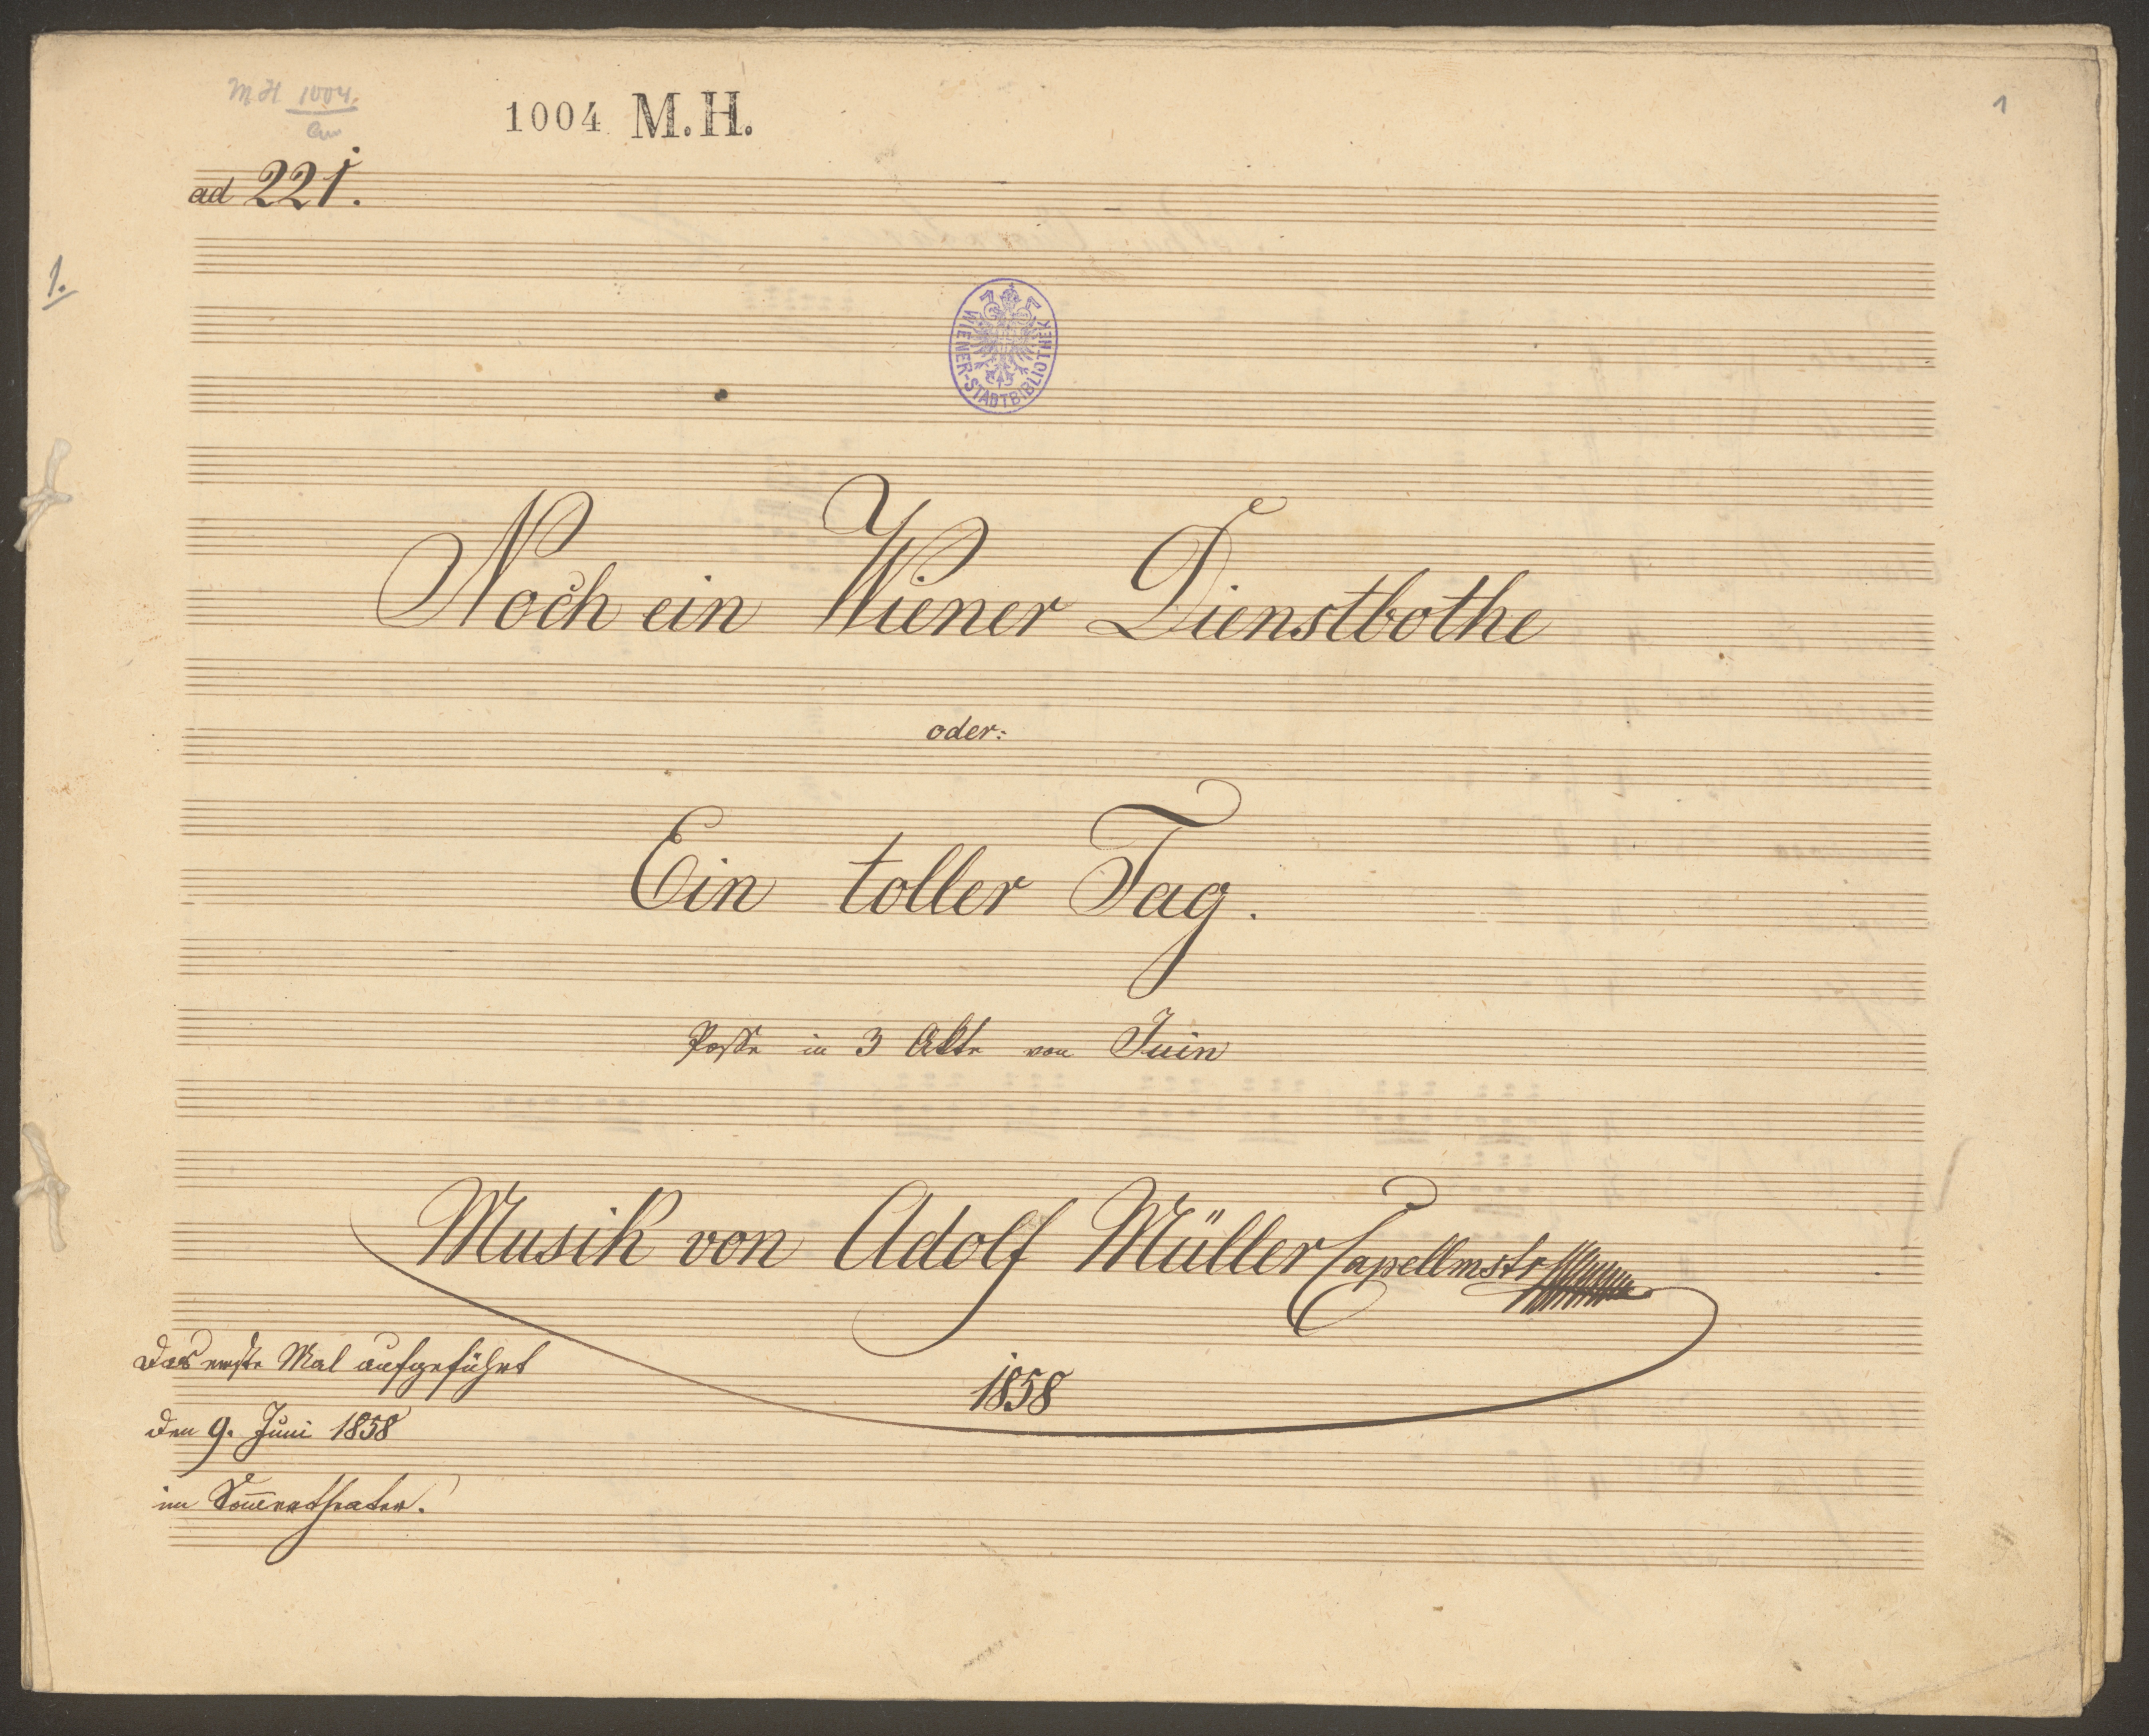 M.H 1004.
1004 M.H.
1
ad 221.
1.
WIENER-STADTBIBLIOTHEK
Noch ein Wiener Dienstbothe
oder:
Ein toller Tag.
Posse in 3 Akte von Juin
Musik von Adolf Müller Capellmstr
1858
Das erste Mal aufgeführt
den 9. Juni 1858
im Som̅ertheater.